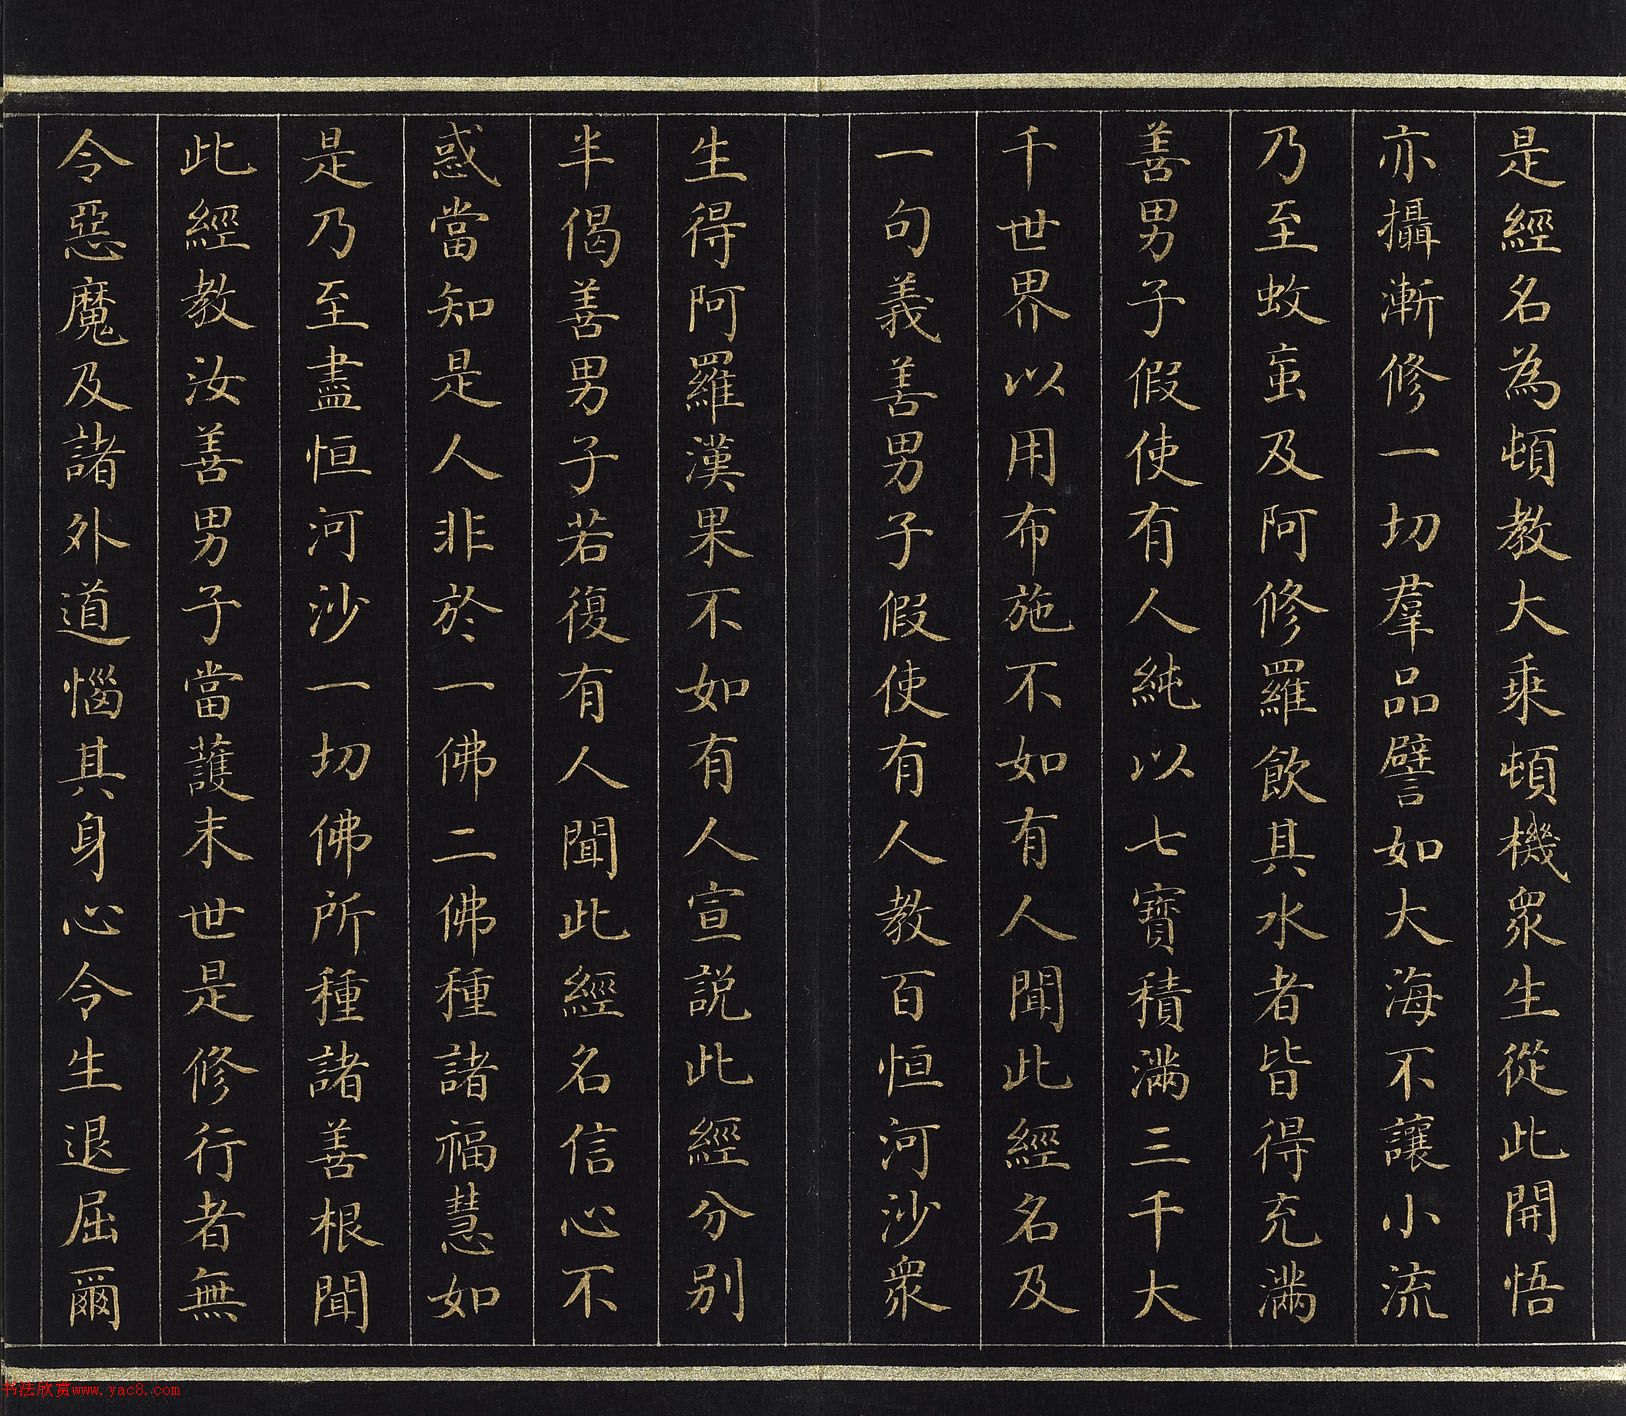 是經名為頓教大乘頓機眾生從此開悟
亦攝漸修一切羣品譬如大海不讓小流
乃至蚊䖟及阿修羅飲其水者皆得充滿
善男子假使有人純以七寶積滿三千大
千世界以用布施不如有人聞此經名及
一句義善男子假使有人教百恒河沙眾
生得阿羅漢果不如有人宣説此經分別
半偈善男子若復有人聞此經名信心不
惑當知是人非於一佛二佛種諸福慧如
是乃至盡恒河沙一切佛所種諸善根聞
此經教汝善男子當護末世是修行者無
令惡魔及諸外道惱其身心令生退屈爾
书法欣赏www.yac8.com